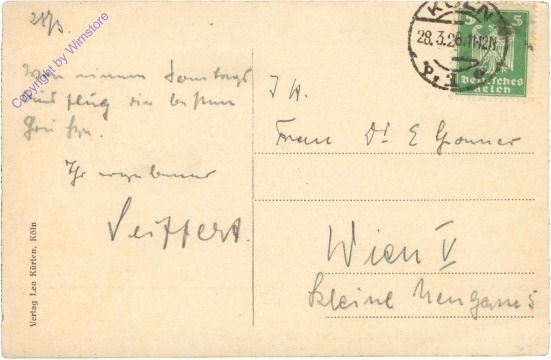 28/3.
Copyright by Wimstore
Von einem Sonntags
die besten
Grüße
Ihr ergebener
Seiffert.
Verlag Leo Kürten, Köln
KÖLN
28.3.26.11-12N
5 5
Deutsches
Reich
Frau Dr E
Wien V
kleine Neugasse 5